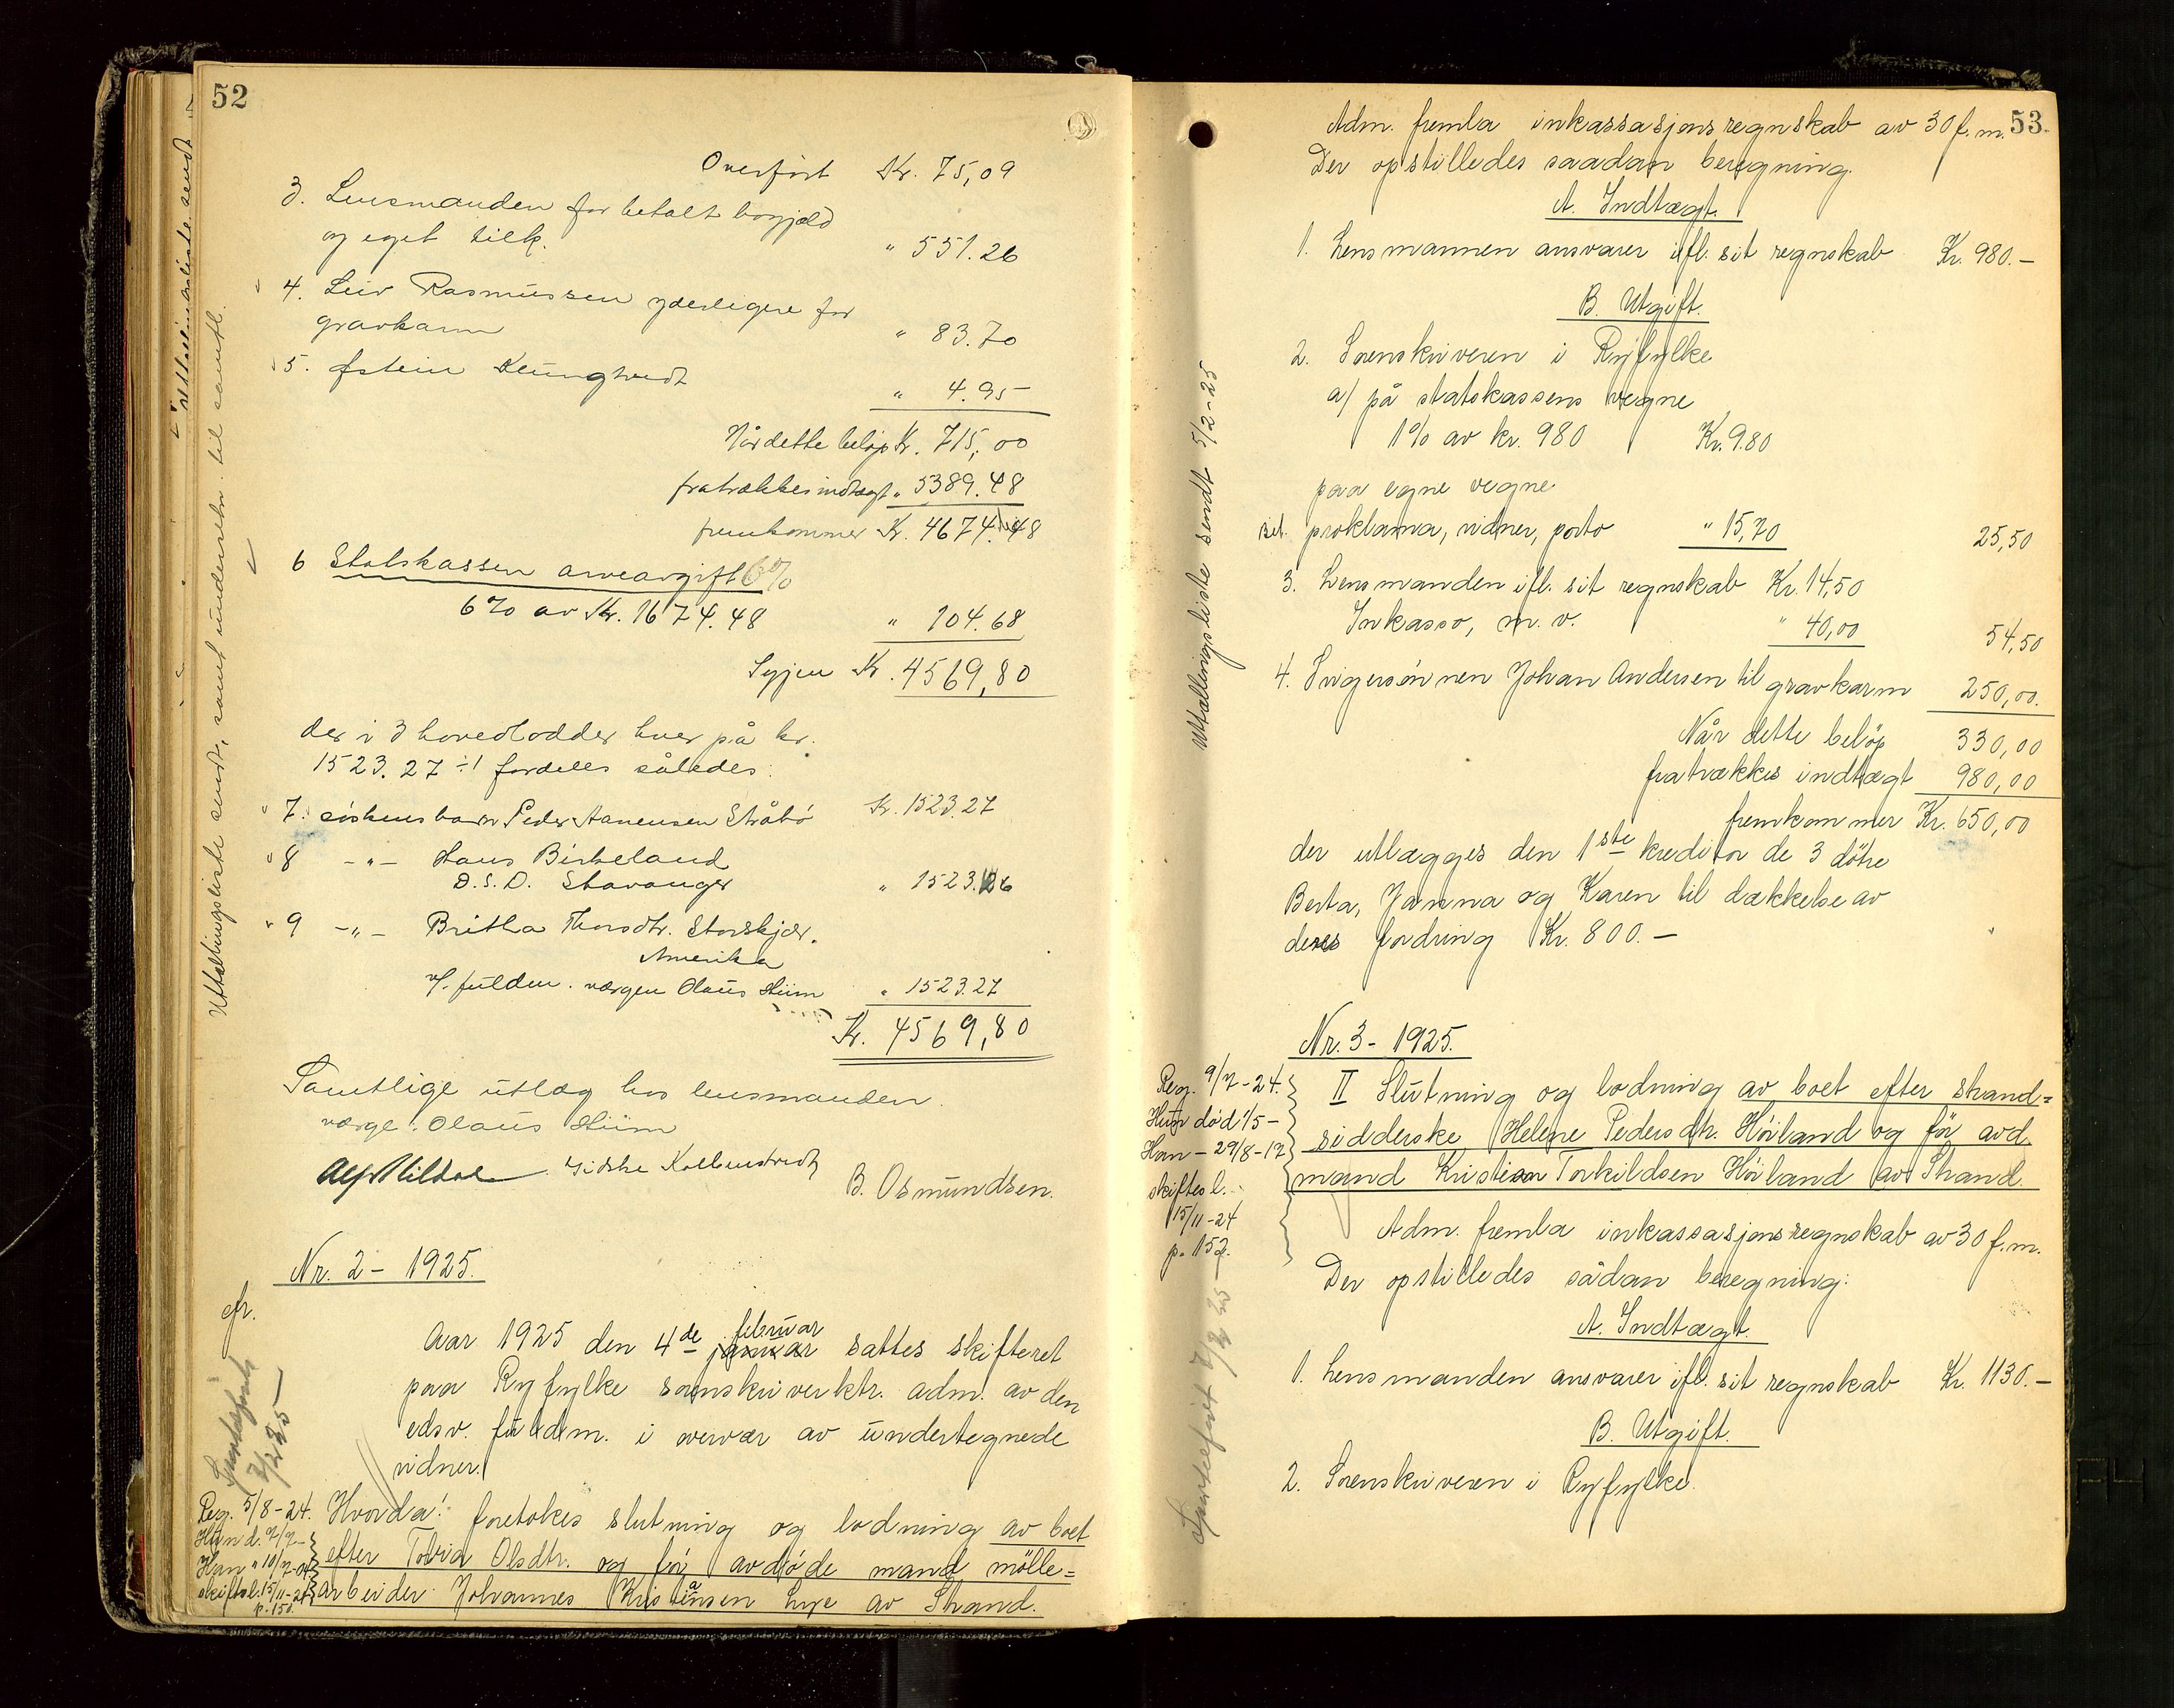 52
Overført Kr. 75,09
3. Lensmanden for betalt bogjæld
og eget tilk. " 551.26
4. Leiv Rasmussen yderligere for
gravkarm " 83.70
5. Østein Kllungtvedt " 4.95
Når dette beløp Kr. 715,00
fratrækkes indtægt " 5389.48
fremkommer Kr. 4674.48
6 Statskassen arveavgift 6%
6% av Kr. 1674.48 " 104.68
Igjen Kr. 4569,80
der i 3 hovedlodder hver på kr.
1523.27 ÷1 fordeles således:
" 7. søskensbarn Peder Aanensen Stråbø Kr. 1523.27
" 8 -"- Hans Birkeland
D.S.D. Stavanger " 1523.26
" 9 -"- Britha Thorsdtr. Storskjær,
Amerika
v/ fuldm. værgen Olaus Hiim " 1523.27
Kr. 4569,80
Samtlige utlæg hos lensmanden.
værge: Olaus Hiim
Alf Mildal Kolbenstvedt B. Osmundsen.
Nr. 2 - 1925.
Aar 1925 den 4de januar februar sattes skifteret
paa Ryfylke sorenskriverktr. adm. av den
edsv. fuldm. i overvær av undertegnede
vidner.
Hvorda: foretokes slutning og lodning av boet
efter Tovia Olsdtr. og før avdøde mand mölle=
arbeider Johannes Kristiansen Lye av Strand.
cfr.
2/2 25
Reg. 5/8-24.
Hun d. 9/7-
Han " 10/7-04
skiftesl. 15/11-24
p. 150.
Uttællingsliste sendt, samt underretn. til samtl.
53.
Adm. fremla inkassasjonsregnskab av 30 f.m.
Der opstilledes saadan beregning.
A. Indtægt.
1. Lensmannen ansvarer ifl. sit regnskab Kr. 980.-
B. Utgift.
2. Sorenskriveren i Ryfylke
a/ på statskassens vegne
1% av kr. 980 Kr. 9.80
paa egne vegne
Bet. proklama, vidner, porto " 15,70 25,50
3. Lensmanden ifl. sit regnskab Kr. 14,50
Inkasso, m.v. " 40,00 54,50
4. Svigersønnen Johan Andersen til gravkarm 250,00.
Når dette beløp 330,00
fratrækkes indtægt 980,00
fremkommer Kr. 650,00
der utlægges den 1ste kreditor de 3 døtre
Berta, Janna og Karen til dækkelse av
deres fordring Kr. 800.-
Uttællingsliste sendt 5/2-25
Nr. 3 - 1925.
II Slutning og lodning av boet efter strand=
sidderske Helene Pedersdtr. Höiland og för avd.
mand Kristian Torkildsen Höiland av Strand.
Reg. 9/7-24.
Hun död 1/5-
Han - 29/8-17
skiftesl.
15/11-24
p. 152.
Adm. fremla inkassasjonsregnskab av 30 f.m.
Der opstilledes sådan beregning:
A. Indtægt.
1. Lensmanden ansvarer ifl. sit regnskab Kr. 1130.-
B. Utgift.
2. Sorenskriveren i Ryfylke.